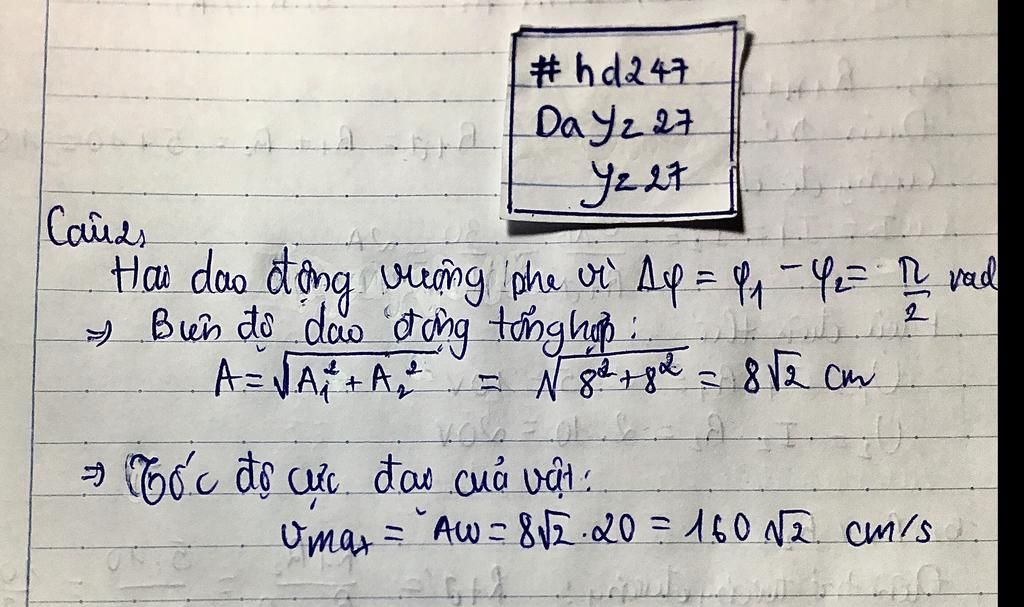 #hd247
Dayz27
yz27
Câu 2,
Hai dao động vuông pha vì Δφ = φ₁ - φ₂ = π/2 rad
⇒ Biên độ dao động tổng hợp:
A = √(A₁² + A₂²) = √(8² + 8²) = 8√2 cm
⇒ Tốc độ cực đại của vật:
vmax = Aω = 8√2 . 20 = 160√2 cm/s